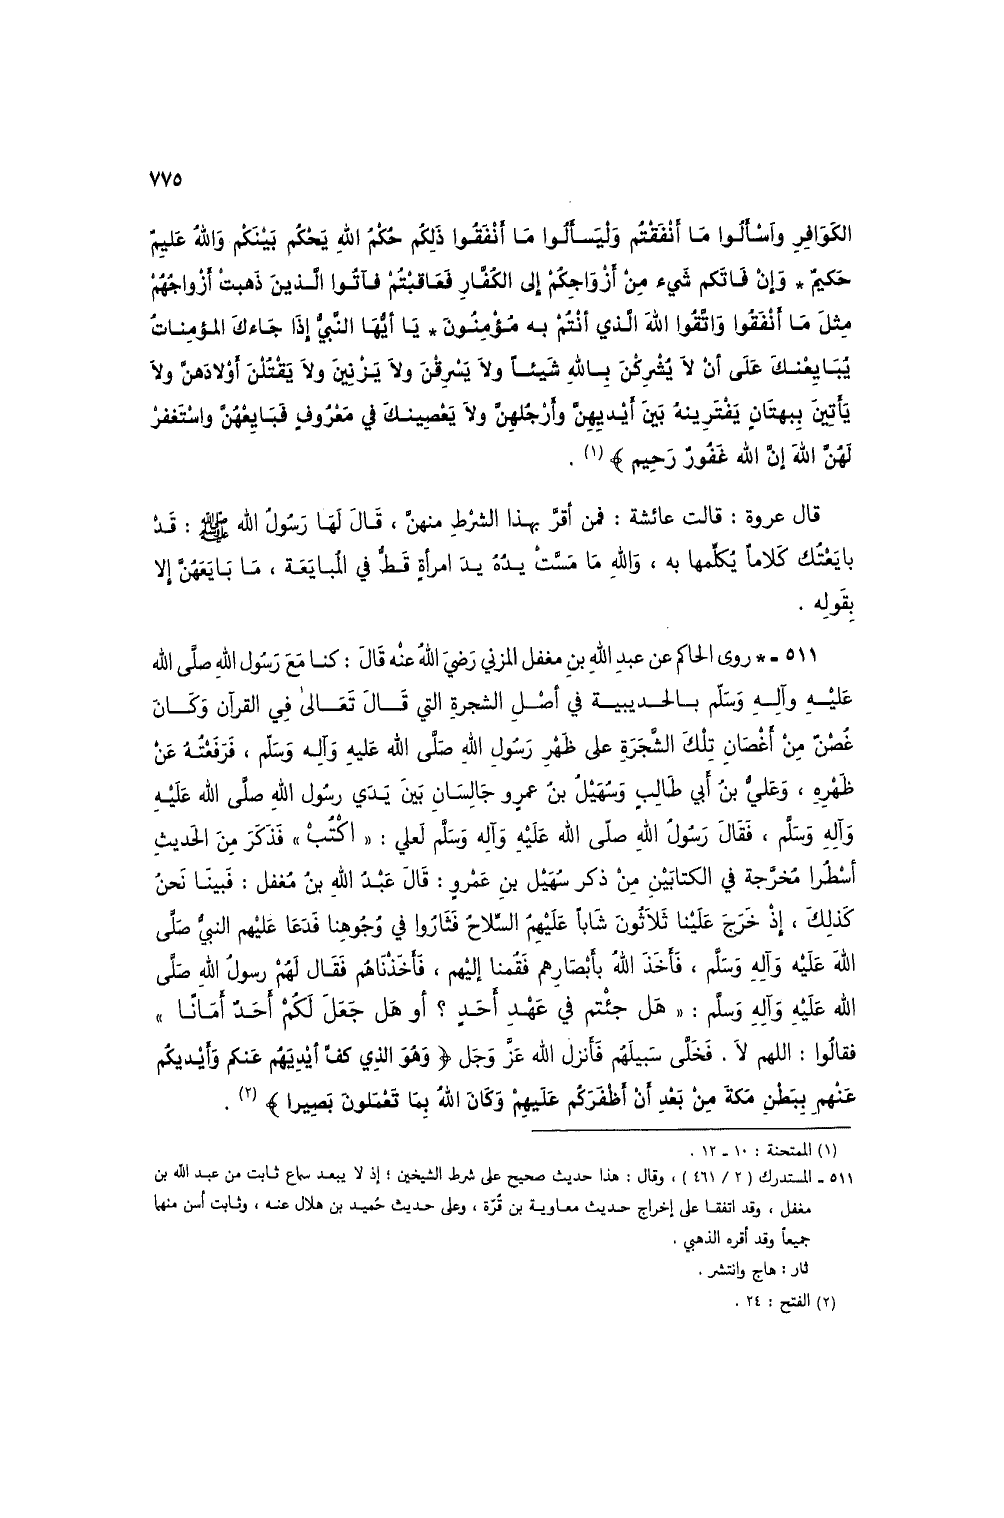 ٧٧٥
الكَوَافِرِ واَسْأَلُوا مَا أَنْفَقْتُم وَلْيَسأَلُوا مَا أَنْفَقُوا ذَلِكُم حُكْمُ اللهِ يَحْكُم بَيْنَكُم وَاللهُ عَلِيمٌ
حَكيمٌ * وَإِنْ فَاتَكم شَيء مِنْ أَزْوَاجِكُمْ إلى الكَفَّارِ فَعَاقَبْتُمْ فآتُوا الَّذينَ ذَهبتْ أَزْواجُهُمْ
مِثلَ مَا أَنْفَقُوا وَاتَّقُوا اللهَ الَّذي أنْتُمْ به مُؤْمِنُونَ * يَا أيُّهَا النَّبيُّ إذَا جَاءكَ المؤمِنَاتُ
يُبَايِعْنكَ عَلَى أنْ لاَ يُشْرِكْنَ بِاللهِ شَيئاً ولاَ يَسْرِقْنَ ولاَ يَزْنِينَ ولاَ يَقْتُلْنَ أَوْلادَهنَّ ولاَ
يَأتِينَ بِبهتَانٍ يَفْتَرِينهُ بَينَ أيْديهِنَّ وأَرْجُلهِنَّ ولاَ يَعْصِينكَ في مَعْرُوفٍ فَبَايِعْهُنَّ واسْتَغفرْ
لَهُنَّ اللهَ إنَّ الله غَفُورٌ رَحِيم ﴾ (١) .
قال عروة : قالت عائشة : فمن أقرَّ بهذا الشرْطِ منهنَّ ، قَالَ لَهَا رَسُولُ الله ﷺ : قَدْ
بايَعْتُك كَلاماً يُكلِّمها به ، وَاللهِ مَا مَسَّتْ يدُهُ يدَ امرأةٍ قَطُّ في المُبايَعَة ، مَا بَايَعَهُنَّ إلا
بِقَولِه .
٥١١ - * روى الحاكم عن عبدِ اللهِ بنِ مغفل المزني رَضِيَ اللهُ عنْه قَالَ : كنا مَعَ رَسُول اللهِ صلَّى الله
عَلَيْهِ وآلِهِ وَسَلّم بالحديبية في أصْلِ الشجرةِ التي قَالَ تَعَالىٰ فِي القرآن وَكَانَ
غُصْنٌ مِنْ أَغْصَانِ تِلْكَ الشَّجَرَةِ على ظَهْرِ رَسُولِ اللهِ صلَّى الله عَليهِ وَآلِه وَسَلّم ، فَرَفَعْتُهُ عَنْ
ظَهْرِهِ ، وَعَليُّ بنُ أبي طَالِبٍ وَسُهَيْلُ بنُ عمرٍو جَالِسَانِ بَينَ يَدَي رسُولِ اللهِ صلَّى الله عَلَيْهِ
وَآلِهِ وَسَلَّم ، فَقَالَ رَسُولُ اللهِ صلّى الله عَلَيْهِ وَآلِه وَسَلَّم لَعلي : « اكْتُبْ » فَذَكَرَ مِنَ الحَديثِ
أسْطُرا مُخرَّجة في الكتابَيْنِ مِنْ ذكر سُهَيْل بنِ عَمْرٍو : قَالَ عَبْدُ اللهِ بنُ مُغفل : فَبينَا نَحنُ
كَذلِكَ ، إذْ خَرَجَ عَلَيْنا ثَلاَثُونَ شَاباً عَلَيْهِمُ السِّلاحُ فَثَارُوا في وُجُوهِنا فَدَعَا عَلَيْهم النبيُّ صلَّى
اللهَ عَلَيْه وَآلِهِ وَسَلَّم ، فَأَخَذَ اللهُ بأَبْصَارِهم فَقُمنا إليْهم ، فَأَخَذْنَاهُم فَقَال لَهُمْ رسولُ اللهِ صلَّى
الله عَلَيْهِ وَآلِهِ وَسلَّم : « هَل جئْتم في عَهْدِ أَحَدٍ ؟ أو هَل جَعَلَ لَكُمْ أَحَدٌ أَمَانًا »
فقالُوا : اللهم لاَ . فَخَلَّى سَبيلَهُم فَأَنزل الله عَزَّ وَجَل ﴿ وَهُوَ الذي كفَّ أيْدِيَهُم عَنكم وَأيْديكُم
عَنْهم بِبَطْنِ مَكةَ مِنْ بَعْدِ أَنْ أظْفَرَكُم عَلَيهِمْ وَكَانَ اللهُ بِمَا تَعْمَلونَ بَصِيرا ﴾ (٢) .
(١) الممتحنة : ١٠ - ١٢ .
٥١١ - المستدرك ( ٢ / ٤٦١ ) ، وقال : هذا حديث صحيح على شرط الشيخين ؛ إذ لا يبعد سماع ثابت من عبد الله بن
مغفل ، وقد اتفقا على إخراج حديث معاوية بن قرّة ، وعلى حديث حُميد بن هلال عنه ، وثابت أسن منهما
جميعاً وقد أقره الذهبي .
ثار : هاج وانتشر .
(٢) الفتح : ٢٤ .